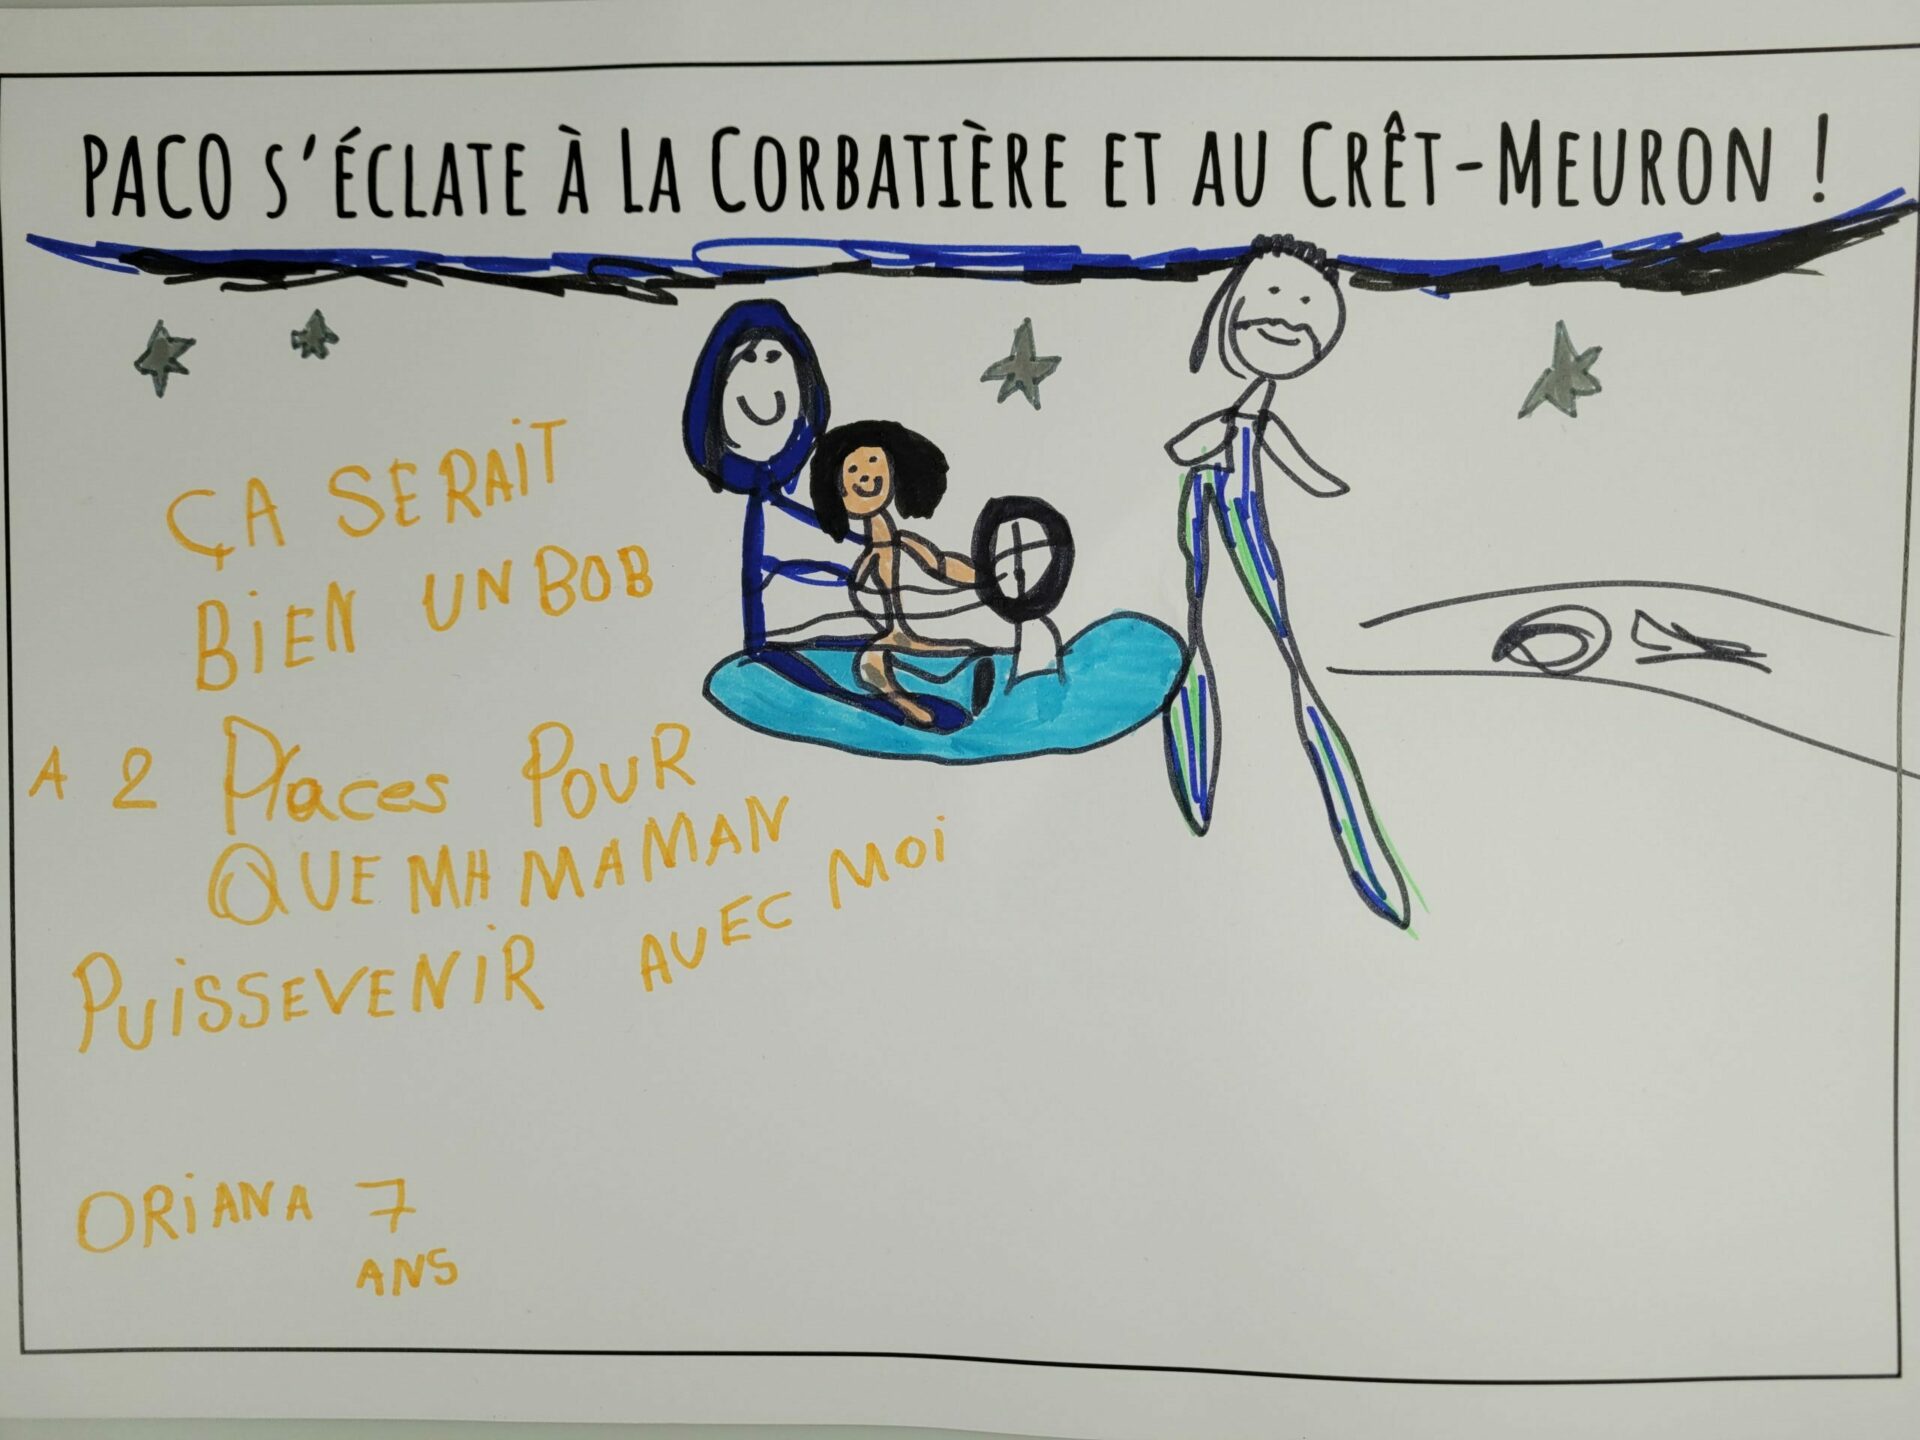 PACO S'ÉCLATE À LA CORBATIÈRE ET AU CRÊT-MEURON !
ÇA SERAIT
BIEN UN BOB
A 2 Places POUR
QUE MA MAMAN
PUISSEVENIR AVEC MOI
ORIANA 7
ANS